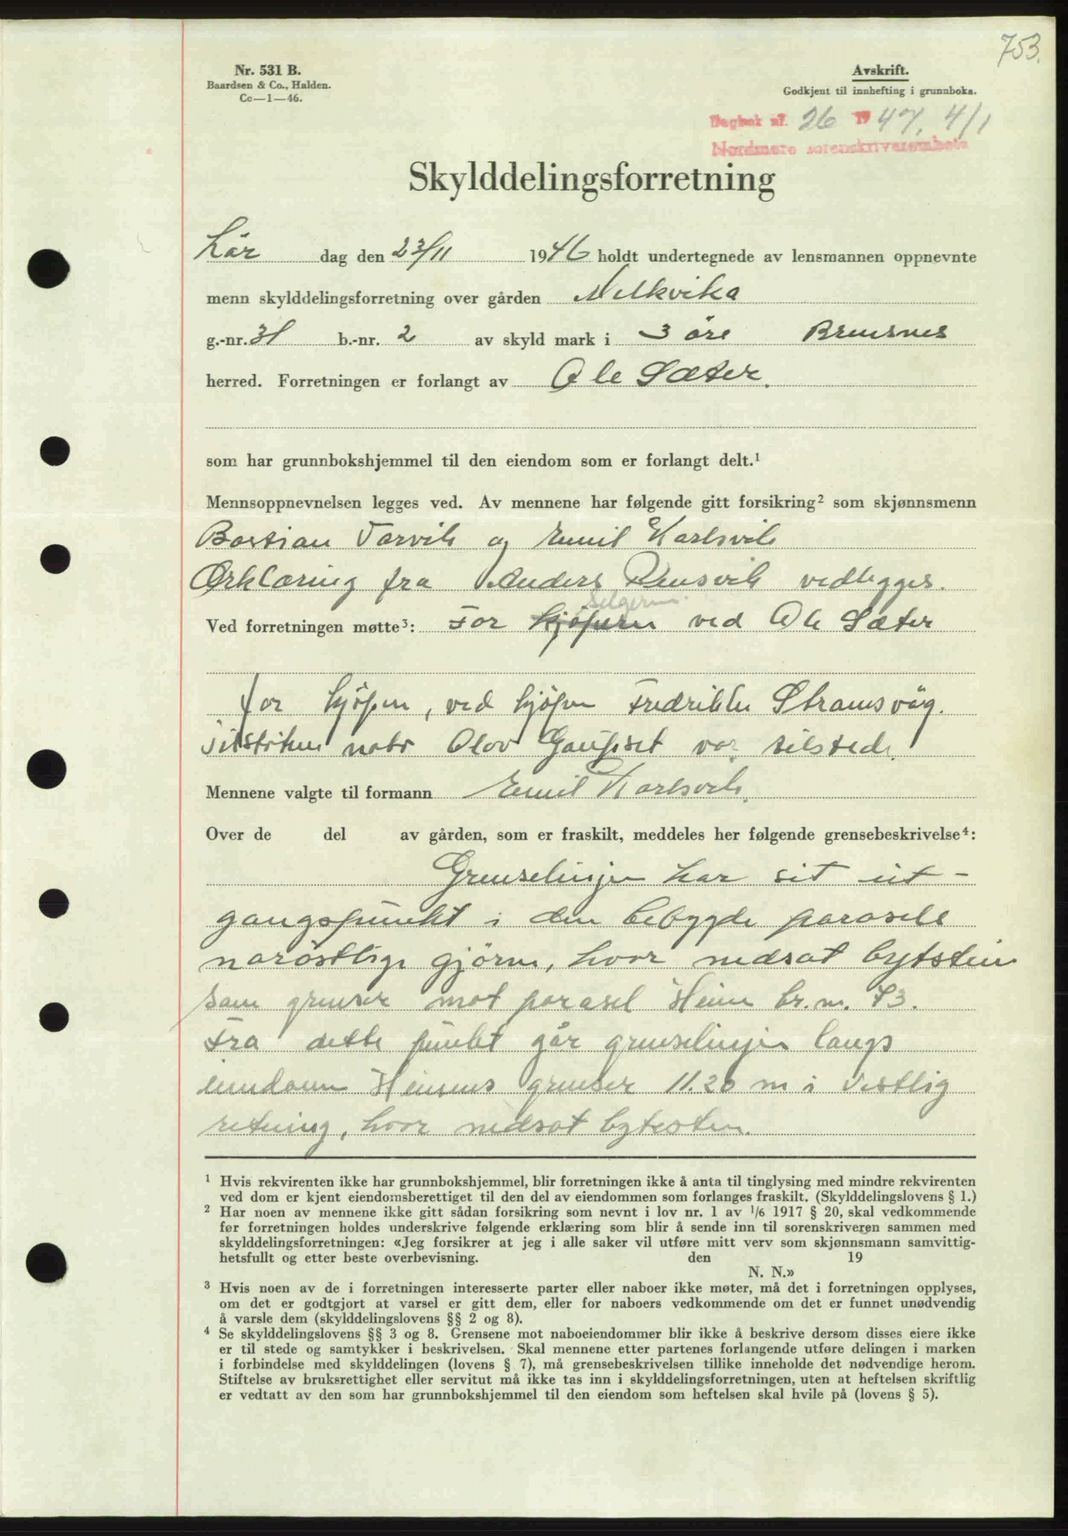 753.
Nr. 531 B.
Baardsen & Co., Halden.
Cc—1—46.
Avskrift.
Godkjent til innhefting i grunnboka.
Dagbok nr. 26 1947, 4/1
Nordmøre sorenskriverembete
Skylddelingsforretning
Lör dag den 23/11 1946 holdt undertegnede av lensmannen oppnevnte
menn skylddelingsforretning over gården Melkvika
g.-nr. 31 b.-nr. 2 av skyld mark i 3 öre Bremsnes
herred. Forretningen er forlangt av Ole Sæter.
som har grunnbokshjemmel til den eiendom som er forlangt delt.¹
Mennsoppnevnelsen legges ved. Av mennene har følgende gitt forsikring² som skjønnsmenn
Bastian Vorvik og Emil Karlsvik
Ærklæring fra Anders vedlegges.
Selgern.
Ved forretningen møtte³: For kjöpern ved Ole Sæter
for kjöpern, ved kjöper Fredrikke Strømsvåg.
nabo Olov Gaupset var tilstede.
Mennene valgte til formann Emil Karlsvik.
Over de del av gården, som er fraskilt, meddeles her følgende grensebeskrivelse⁴:
Grenselinjen har sit ut-
gangspunkt i den bebygde parosels
noröstlige hjörne, hvor nedsat bytestein
som grenser mot parosel Heim br.nr. 73.
Fra dette punkt går grenselinjen langs
eiendommen Heimens grenser 11.20 m i vestlig
retning, hvor nedsat bytesten.
¹ Hvis rekvirenten ikke har grunnbokshjemmel, blir forretningen ikke å anta til tinglysing med mindre rekvirenten
ved dom er kjent eiendomsberettiget til den del av eiendommen som forlanges fraskilt. (Skylddelingslovens § 1.)
² Har noen av mennene ikke gitt sådan forsikring som nevnt i lov nr. 1 av 1/6 1917 § 20, skal vedkommende
før forretningen holdes underskrive følgende erklæring som blir å sende inn til sorenskriveren sammen med
skylddelingsforretningen: «Jeg forsikrer at jeg i alle saker vil utføre mitt verv som skjønnsmann samvittig-
hetsfullt og etter beste overbevisning. den 19
N. N.»
³ Hvis noen av de i forretningen interesserte parter eller naboer ikke møter, må det i forretningen opplyses,
om det er godtgjort at varsel er gitt dem, eller for naboers vedkommende om det er funnet unødvendig
å varsle dem (skylddelingslovens §§ 2 og 8).
⁴ Se skylddelingslovens §§ 3 og 8. Grensene mot naboeiendommer blir ikke å beskrive dersom disses eiere ikke
er til stede og samtykker i beskrivelsen. Skal mennene etter partenes forlangende utføre delingen i marken
i forbindelse med skylddelingen (lovens § 7), må grensebeskrivelsen tillike inneholde det nødvendige herom.
Stiftelse av bruksrettighet eller servitut må ikke tas inn i skylddelingsforretningen, uten at heftelsen skriftlig
er vedtatt av den som har grunnbokshjemmel til den eiendom som heftelsen skal hvile på (lovens § 5).